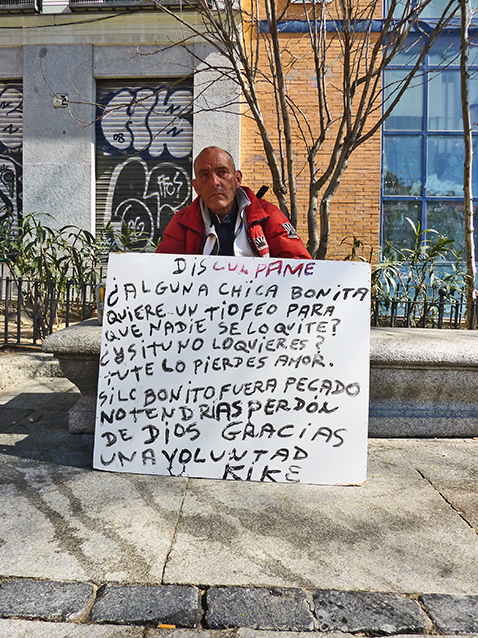 DISCULPAME
¿ALGUNA CHICA BONITA
QUIERE UN TIOFEO PARA
QUE NADIE SE LO QUITE?
¿YSITUNO LOQUIERES?
TUTE LO PIERDES AMOR.
SILO BONITO FUERA PECADO
NO TENDRIAS PERDÓN
DE DIOS GRACIAS
UNA VOLUNTAD
KIKE